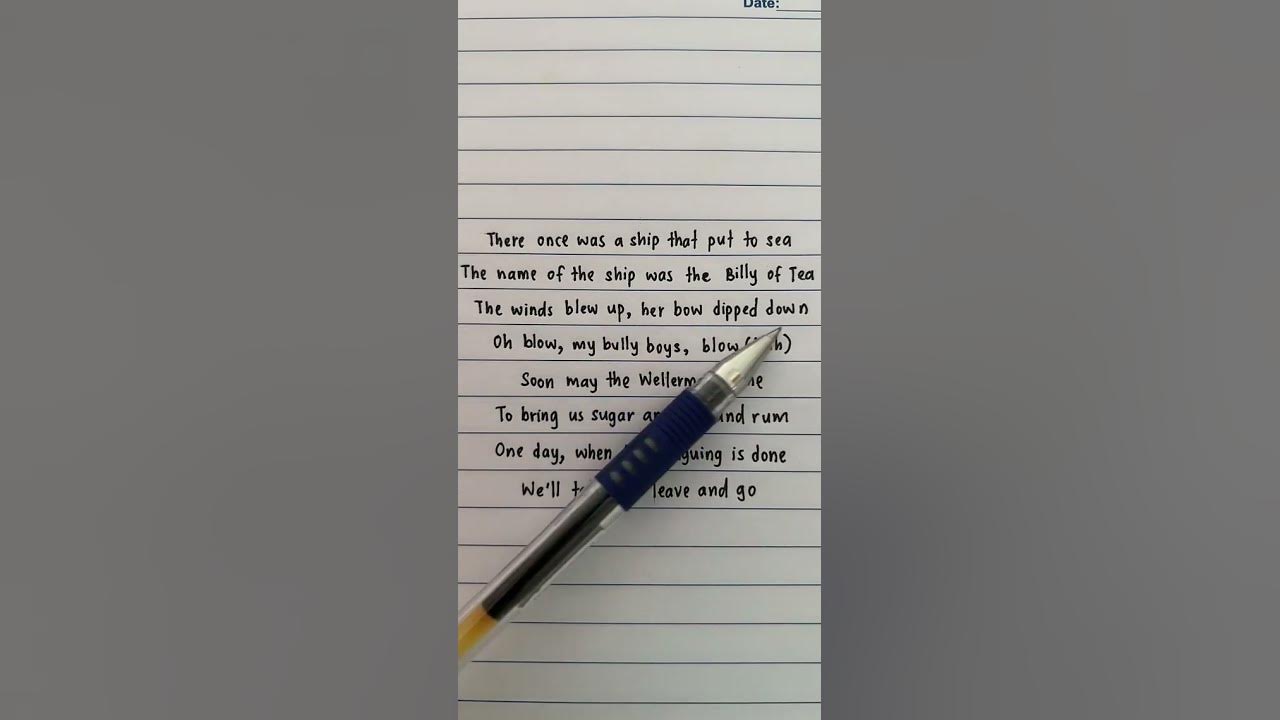 Date:
There once was a ship that put to sea
The name of the ship was the Billy of Tea
The winds blew up, her bow dipped down
Oh blow, my bully boys, blow
Soon may the
To bring us sugar and rum
One day, when is done
We'll leave and go